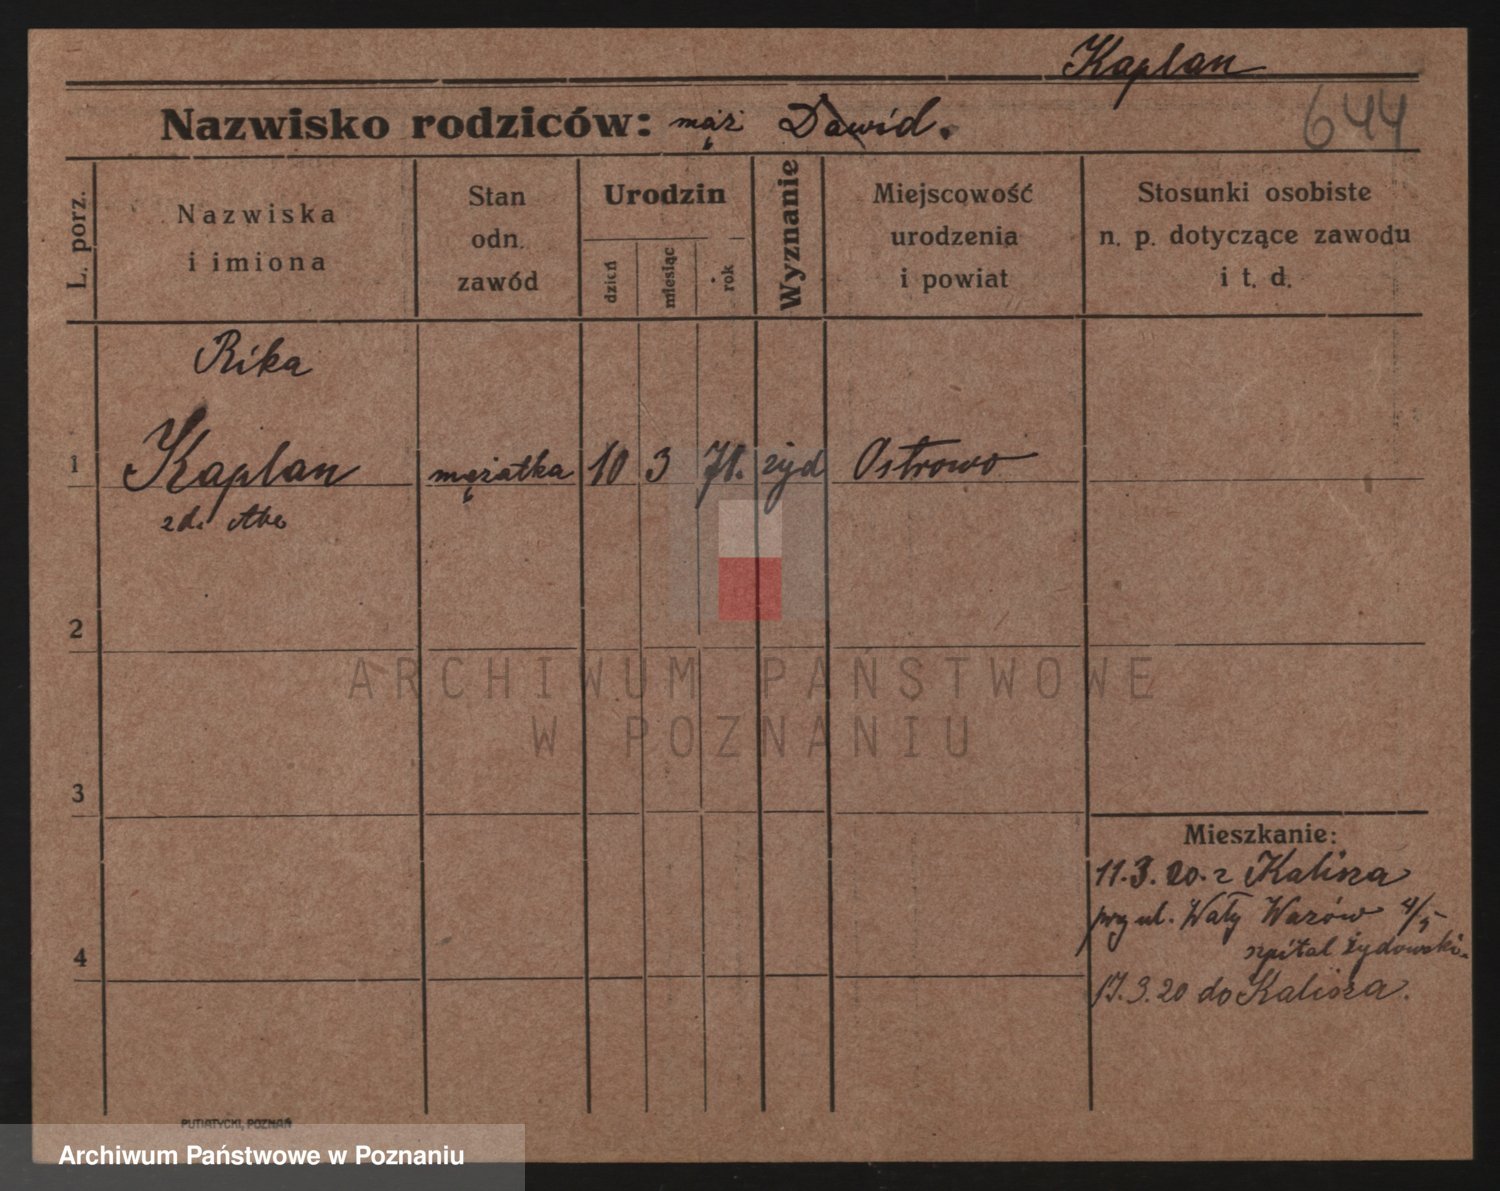 Kaplan
644
Nazwisko rodziców: mąż Dawid.
L. porz.
Nazwiska
i imiona
Stan
odn.
zawód
Urodzin
dzień
miesiąc
rok
Wyznanie
Miejscowość
urodzenia
i powiat
Stosunki osobiste
n. p. dotyczące zawodu
i t. d.
Rika
1 Kaplan mężatka 10 3 71. żyd Ostrowo
zd. Abe
2
ARCHIWUM PAŃSTWOWE
W POZNANIU
3
Mieszkanie:
11.3.20. z Kalisza
przy ul. Wały Wazów 4/5
szpital żydowski.
4
17.3.20 do Kalisza.
PUTIATYCKI, POZNAŃ
Archiwum Państwowe w Poznaniu